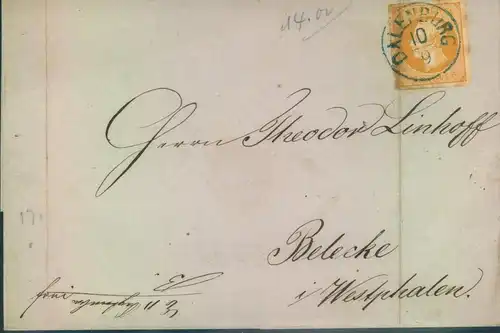 14.00
DALENBURG
10
9
Herrn Theodor Linhoff
Belecke
i/Westphalen.